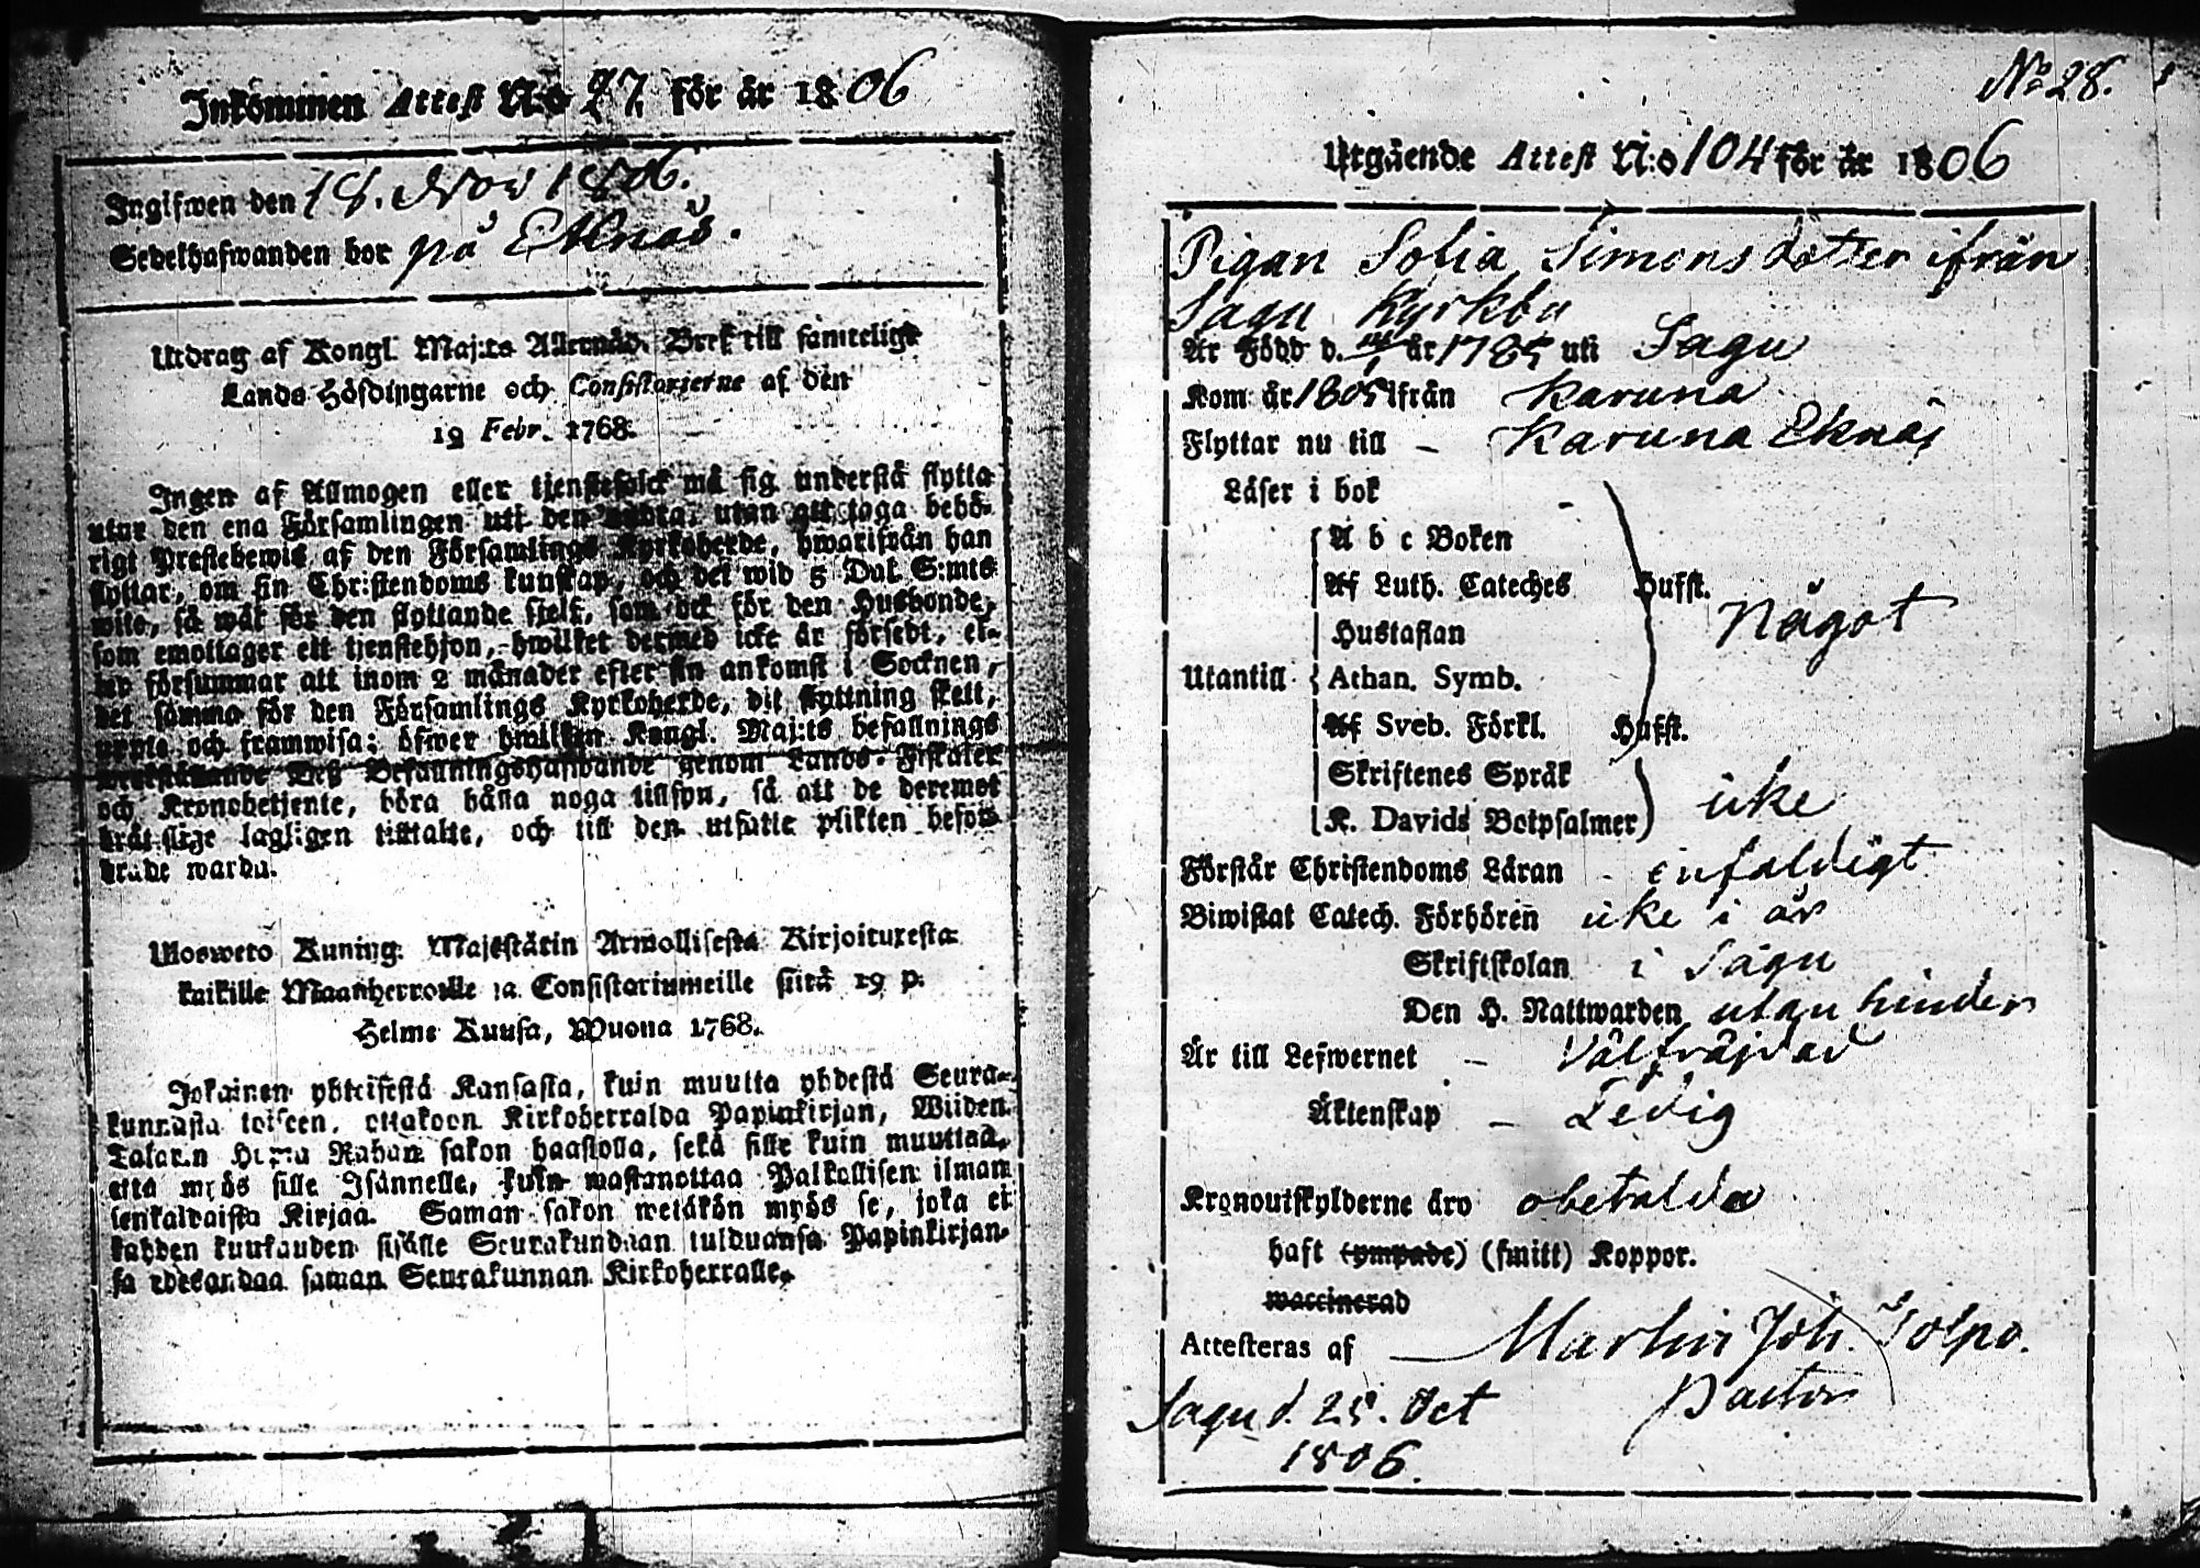 Inkommen Attest N:o 27 för år 1806
Ingifwen den 18. Nov 1806.
Sedelhafwanden bor på Eknäs.
Utdrag af Kongl. Maj:ts Allernåd. Bref till samtelige
Lands Höfdingarne och Consistorierne af den
19 Febr. 1768.
Ingen af Allmogen eller tjenstefolck må sig understå flytta
utur den ena Församlingen uti den andra, utan att taga behö-
rigt Prestebewis af den Församlings Kyrkoherde, hwarifrån han
flyttar, om sin Christendoms kunskap, och det wid 5 Dal. S:mts
wite, så wäl för den flyttande sjelf, som det för den Husbonde,
som emottager ett tjenstehjon, hwilket dermed icke är försedt, el-
ler försummar att inom 2 månader efter sin ankomst i Socknen,
det samma för den Församlings Kyrkoherde, dit flyttning skett,
uppte och framwisa; öfwer hwilken Kongl. Maj:ts befallnings
werkställande Dess Befallningshafwande genom Lands-Fiskaler
och Kronobetjente, böra hålla noga tillsyn, så att de deremot
brätslige lagligen tilltalte, och till den utsatte plikten befor-
drade warda.
Ulosweto Kuning. Majestätin Armollisesta Kirjoituxesta
kaikille Maanherroille ja Consistoriumeille siitä 19 p.
Helme Kuusa, Wuona 1768.
Jokainen yhteisestä Kansasta, kuin muutta yhdestä Seura-
kunnasta toiseen, ottakoon Kirkoherralda Papinkirjan, Wiiden
Talarin Hopia Rahan sakon haastolla, sekä sille kuin muuttaa,
että myös sille Isännelle, kuin wastanottaa Palkollisen ilman
senkaltaista Kirjaa. Saman sakon wetäkön myös se, joka ei
kahden kuukauden sisälle Seurakundaan tulduansa Papinkirjan-
sa edesandaa saman Seurakunnan Kirkoherralle.
No 28.
Utgående Attest N:o 104 för år 1806
Pigan Sofia Simonsdotter ifrån
Sagu Kyrkby
Är Född d. år 1785 uti Sagu
Kom år 1805 ifrån Karuna
Flyttar nu till – Karuna Eknäs
Läser i bok -
A b c Boken
Af Luth. Cateches Hufst.
Hustaflan Något
Utantill Athan. Symb.
Af Sveb. Förkl. Hufst.
Skriftenes Språk
K. Davids Botpsalmer icke
Förstår Christendoms Läran - enfaldigt
Biwistat Catech. Förhören icke i år
Skriftskolan i Sagu
Den H. Nattwarden utan hinder
Är till Lefwernet – Välfräjdad
Äktenskap – Ledig
Kronoutskylderne äro obetalda
haft (ympade) (smitt) Koppor.
waccinerad
Attesteras af Martin Joh. Tolpo.
Sagu d. 25. Oct Pastor
1806.